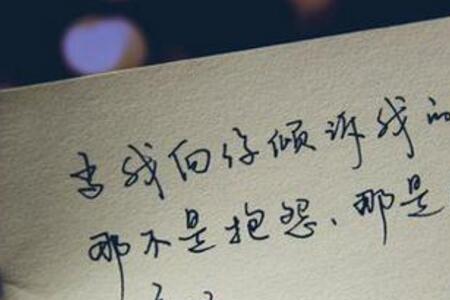 当我向你倾诉我的
那不是抱怨、那是